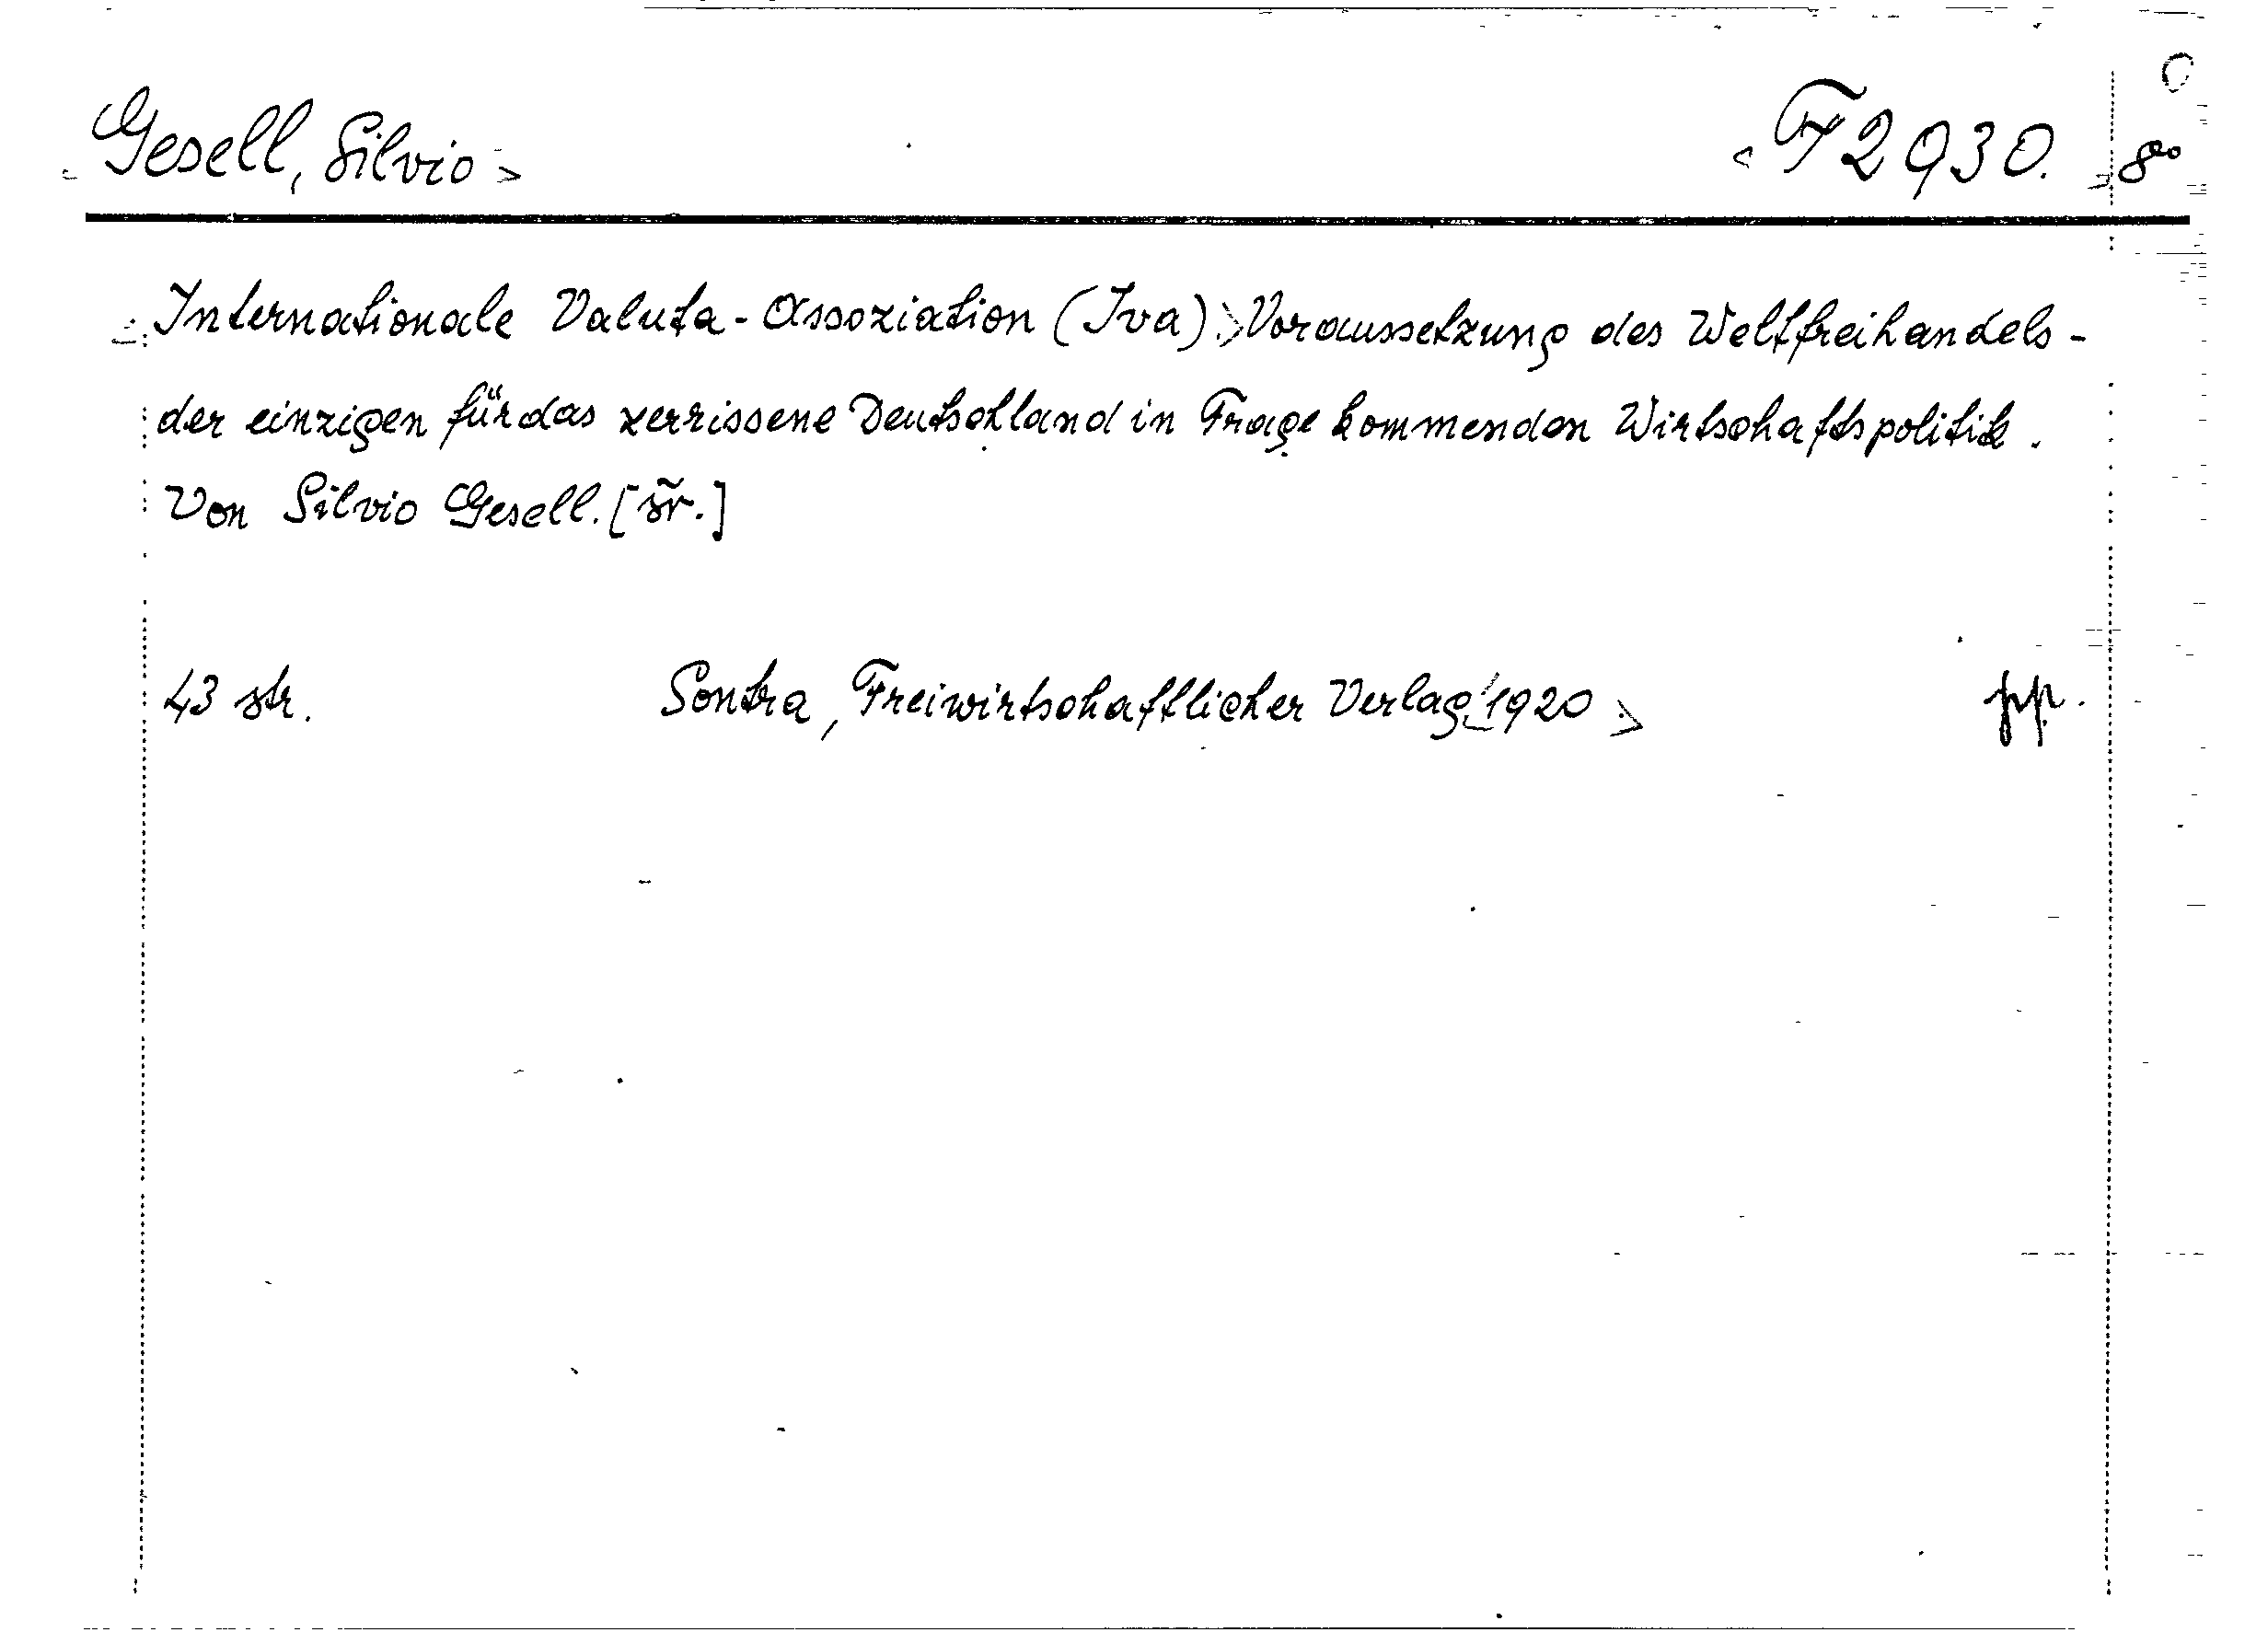 Gesell, Silvio F 2930. 8°
Internationale Valuta-Assoziation (Iva). Voraussetzung des Weltfreihandels-
der einzigen für das zerrissene Deutschland in Frage kommenden Wirtschaftspolitik.
Von Silvio Gesell. [sr.]
43 str. Sontra, Freiwirtschaftlicher Verlag, 1920 pp.